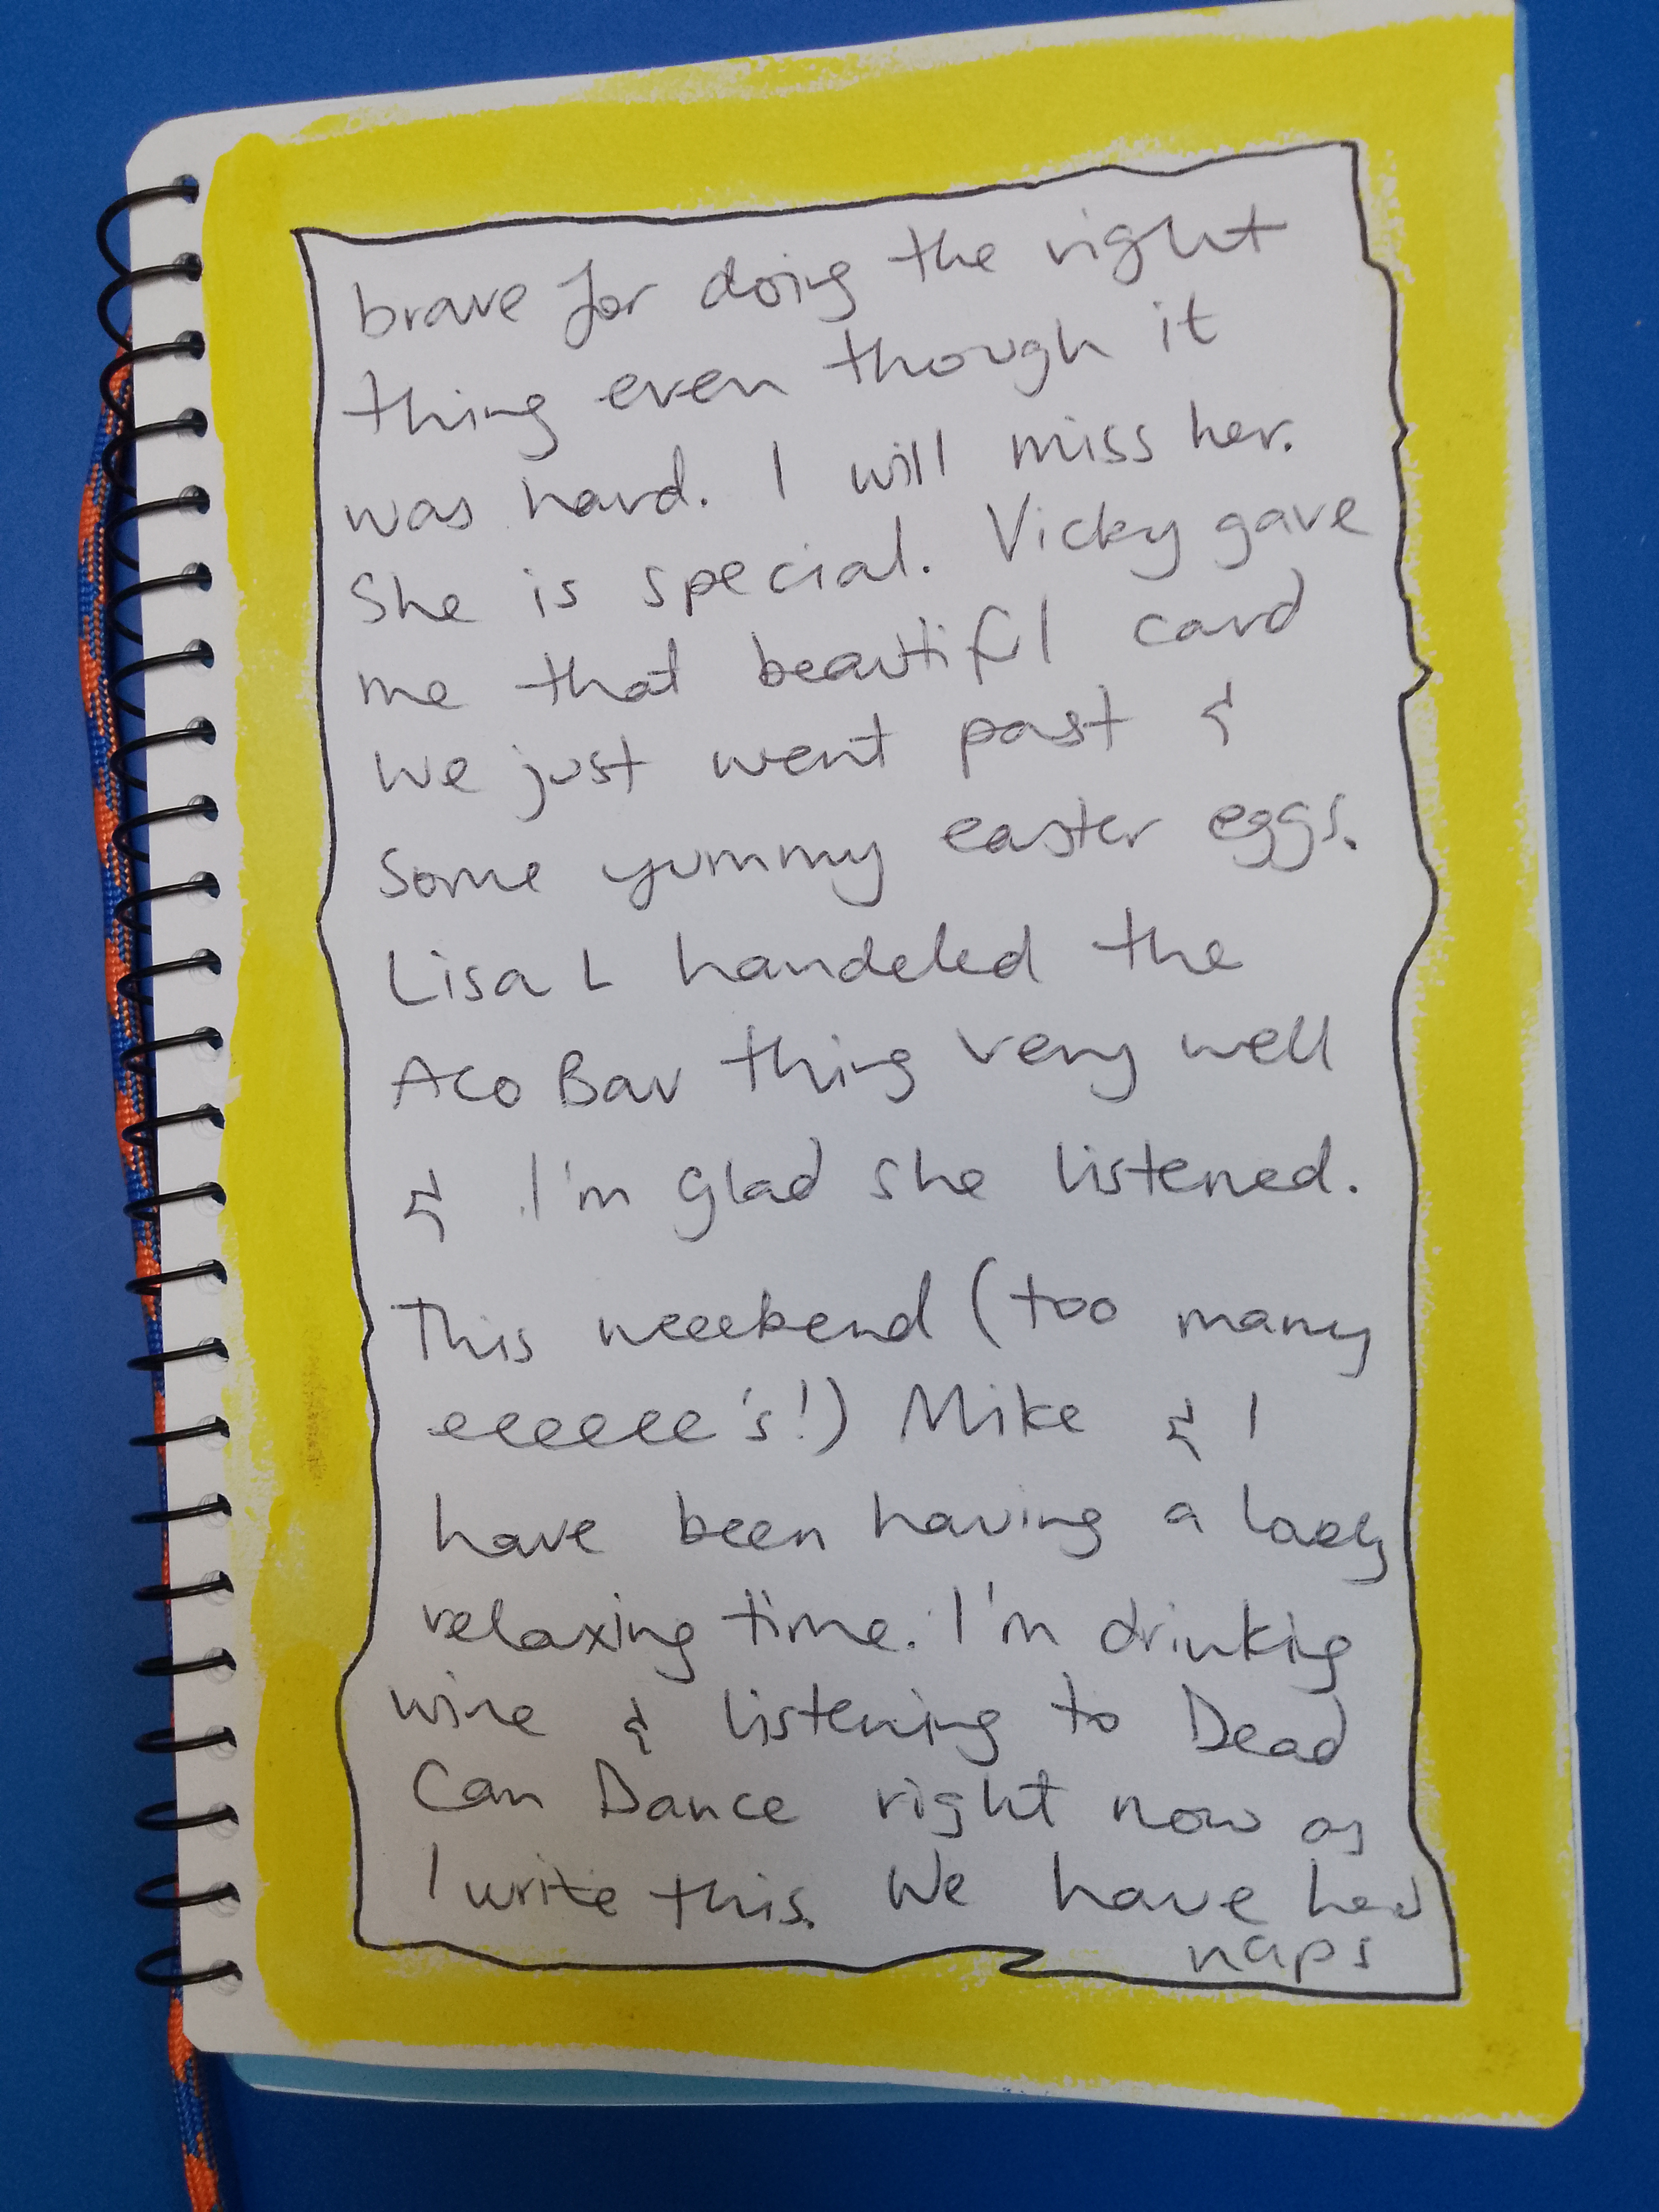 brave for doing the right
thing even though it
was hard. I will miss her.
She is special. Vicky gave
me that beautiful card
we just went past &
some yummy easter eggs.
Lisa L handeled the
Aco Bar thing very well
& I'm glad she listened.
This weeekend (too many
eeeeeee's!) Mike & I
have been having a
relaxing time. I'm drinking
wine & listening to Dead
Can Dance right now as
I write this. We have had
naps